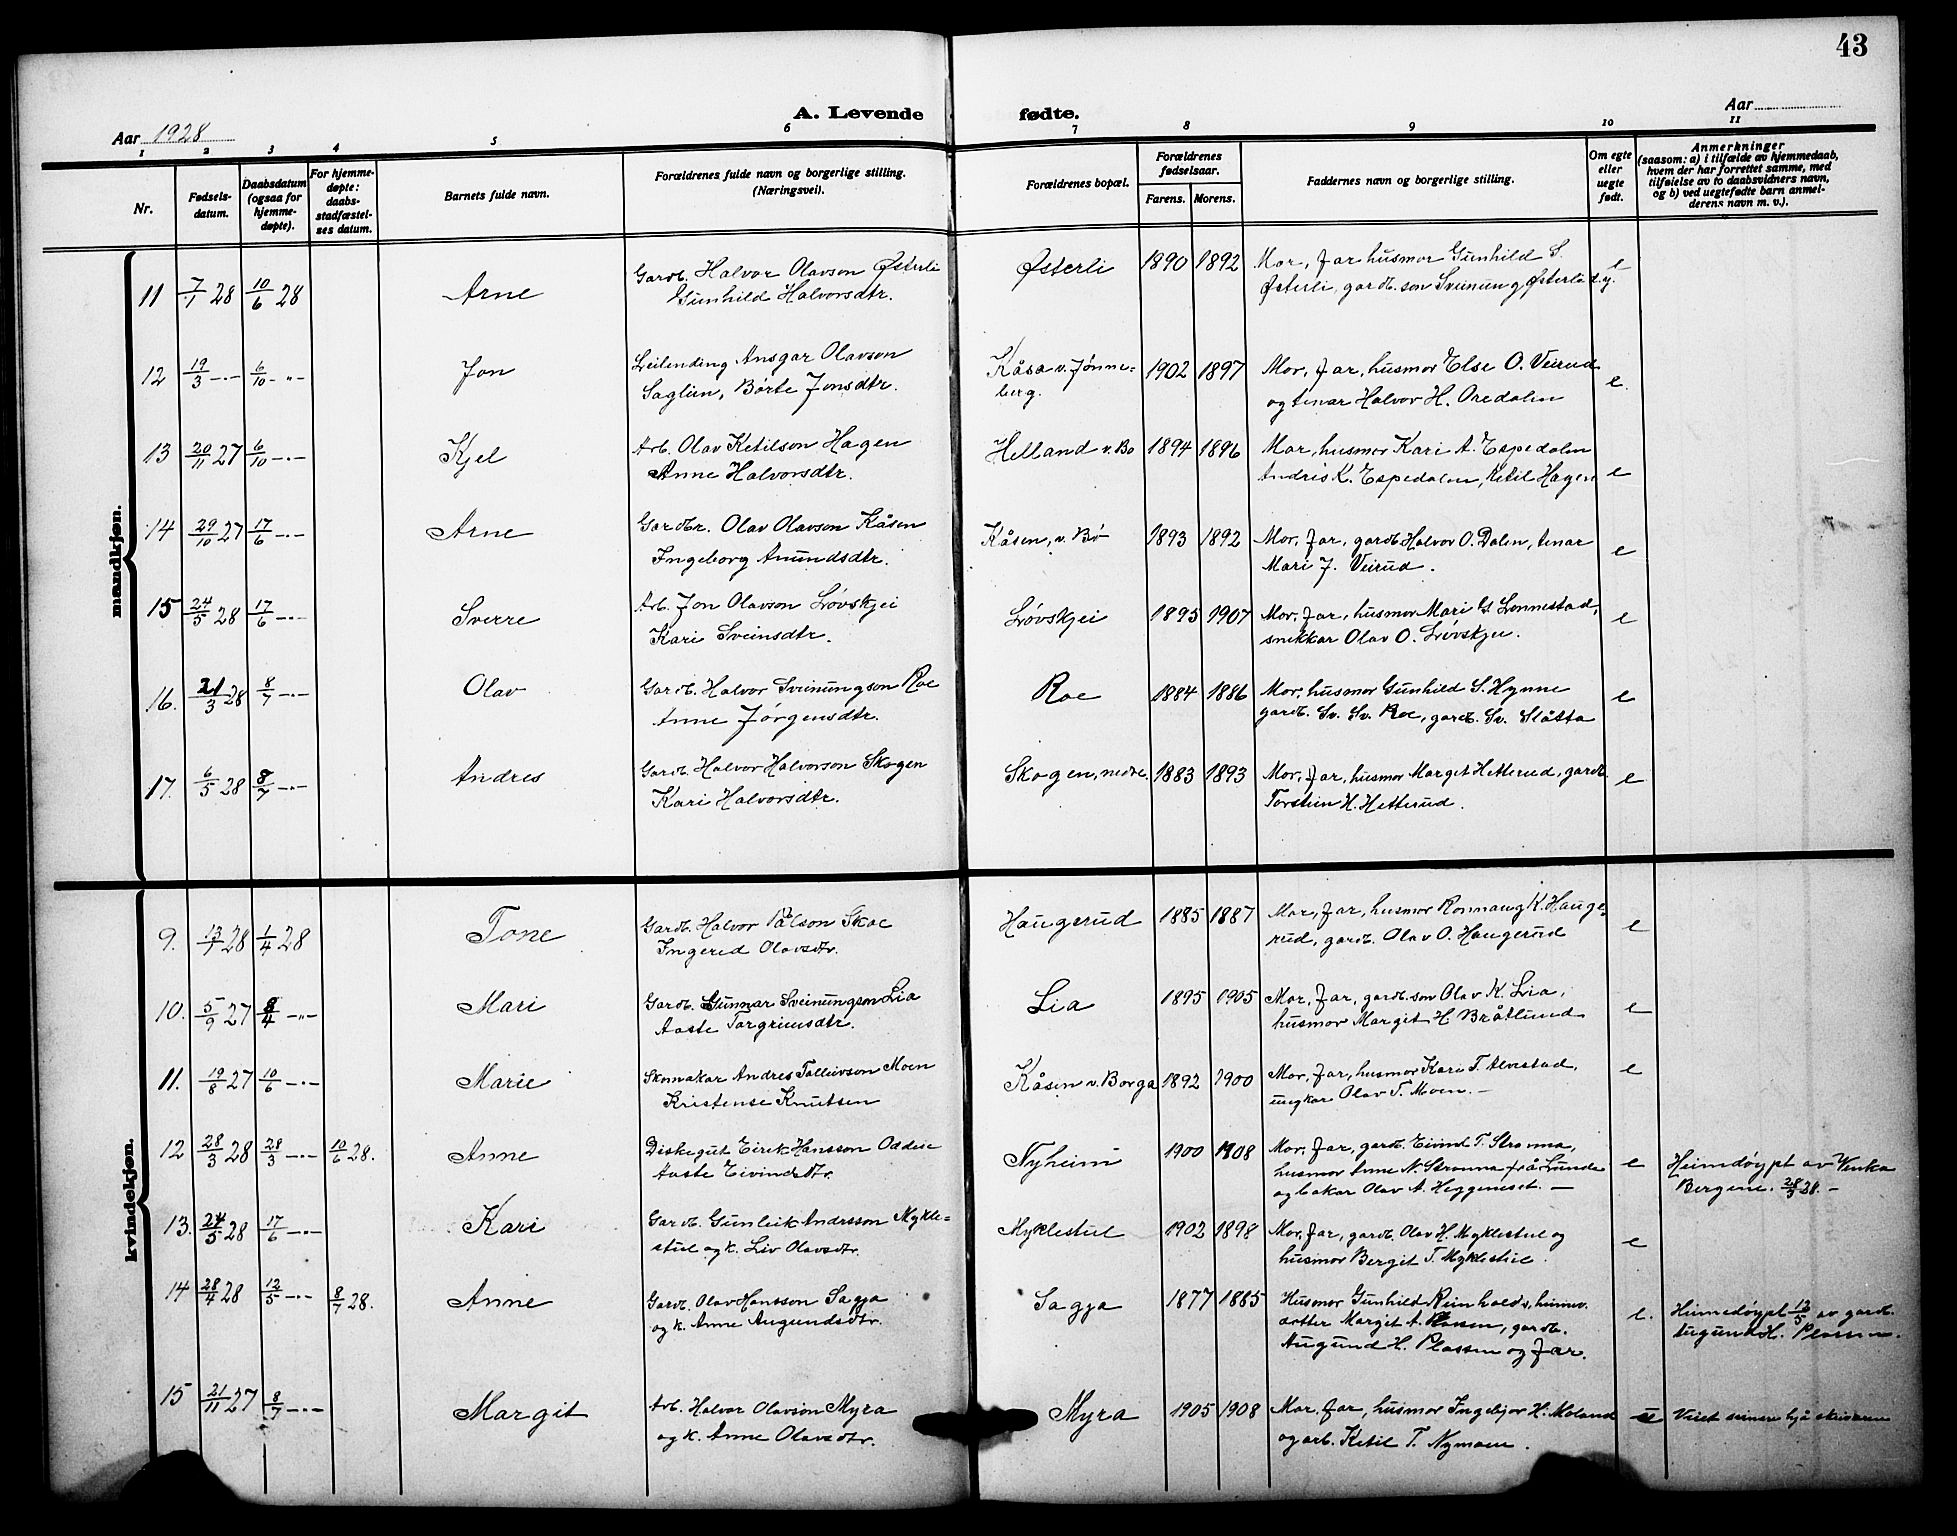 43
A. Levende fødte.
Aar 1928
Aar
1 2 3 4 5 6 7 8 9 10 11
Nr.
Fødsels-
datum.
Daabsdatum
(ogsaa for
hjemme-
døpte).
For hjemme-
døpte:
daabs-
stadfæstel-
ses datum.
Barnets fulde navn.
Forældrenes fulde navn og borgerlige stilling.
(Næringsvei).
Forældrenes bopæl.
Forældrenes
fødselsaar.
Farens. Morens.
Faddernes navn og borgerlig stilling.
Om egte
eller
uegte
født.
Anmerkninger
(saasom: a) i tilfælde av hjemmedaab,
hvem der har forrettet samme, med
tilføielse av to daabsvidners navn,
og b) ved uegtefødte barn anmel-
derens navn m. v.).
mandkjøn.
11 7/1 28 10/6 28 Arne Gardb. Halvor Olavson Østerli Østerli 1890 1892 Mor, Far husmor Gunhild S. e
Gunhild Halvorsdtr. Østerli, gardb. son Sveinung Østerli d.y.
12 19/3 -"- 6/10 -"- Jon Leilending Ansgar Olavson Kåsa v. Jønne- 1902 1897 Mor, Far, husmor Else O. Veirud e.
Saglien, Børte Jonsdtr. berg. og tenar Halvor H. Oredalen
13 20/11 27 6/10 -"- Kjel Arb. Olav Ketilson Hagen Helland v. Bø 1894 1896 Mor, husmor Kari A. Espedalen e
Anne Halvorsdtr. Andris K. Espedalen, Ketil Hagen
14 29/10 27 17/6 -"- Arne Gardbr. Olav Olavson Kåsen Kåsen, v. Bø 1893 1892 Mor, Far, gardb Halvor O. Dalen, tenar e
Ingeborg Anundsdtr. Mari J. Veirud.
15 24/5 28 17/6 -"- Sverre Arb. Jon Olavson Løvskjei Løvskjei 1895 1907 Mor, Far, husmor Mari G Lonnestad, e
Kari Sveinsdtr. snikkar Olav O. Løvskjei.
16. 21/3 28 8/7 -"- Olav Gardb. Halvor Sveinungson Roe Roe 1884 1886 Mor, husmor Gunhild S. Hynne e
Anne Jørgensdtr. gardb. Sv. Sv. Roe, gardb. Sv. Slåtta
17. 6/5 28 8/7 -"- Andres Gardb. Halvor Halvorson Skogen Skogen, nedre 1883 1893 Mor, Far, husmor Marget Hetterud, gardb. e
Kari Halvorsdtr. Torstein H. Hetterud.
kvindekjøn.
9. 13/1 28 1/4 28 Tone Gardb. Halvor Pålson Skoe Haugerud 1885 1887 Mor, Far, husmor Ronnaug K. Hauge- e
Ingerid Olavsdtr. rud, gardb. Olav O. Haugerud
10. 5/9 27 8/4 -"- Mari Gardb. Gunnar Sveinungson Lia Lia 1895 1905 Mor, Far, gardb. son Olav K. Lia, e
Aaste Torgrimsdtr. husmor Margit H Bråtlund
11. 19/8 27 10/6 -"- Marie Skomakar Andres Tolleivson Moen Kåsen v. Borga 1892 1900 Mor, Far, husmor Kari T. Alvestad, e
Kristense Knutsen ungkar Olav T. Moen. -
12 28/3 28 28/3 -"- 10/6 28. Anne Diskegut Eirik Hansson Oddeie Nyheim 1900 1908 Mor, Far, gardb. Eivind T. Stranna, e Heimdøypt av Venka
Aaste Eivindsdtr. husmor Anne N. Stranna frå Lunde Bergene. 28/3 28. -
og bakar Olav A. Heggeneset. -
13. 24/5 28 17/6 -"- Kari Gardb. Gunleik Andresson Mykle- Myklestul 1902 1898 Mor, Far, gardb. Olav H. Myklestul og e
stul og k. Liv Olavsdtr. husmor Bergit T. Myklestul.
14 28/4 28 12/5 -"- 8/7 28. Anne Gardb. Olav Hansson Sagja Sagja 1877 1885 Husmor Gunhild Reinholds, heime- e. Heimedøypt 12/5 av gardb.
og k. Anne Augundsdtr. dotter Margit A. Plassen, gardb. Augund H. Plassen.
Augund H. Plassen og Far.
15 21/11 27 8/7 -"- Margit Arb. Halvor Olavson Myra Myra 1905 1908 Mor, Far, husmor Ingebjør H. Moland u Viet seinere hjå skrivaren
og k. Anne Olavsdtr. og arb. Ketil T. Nymoen.